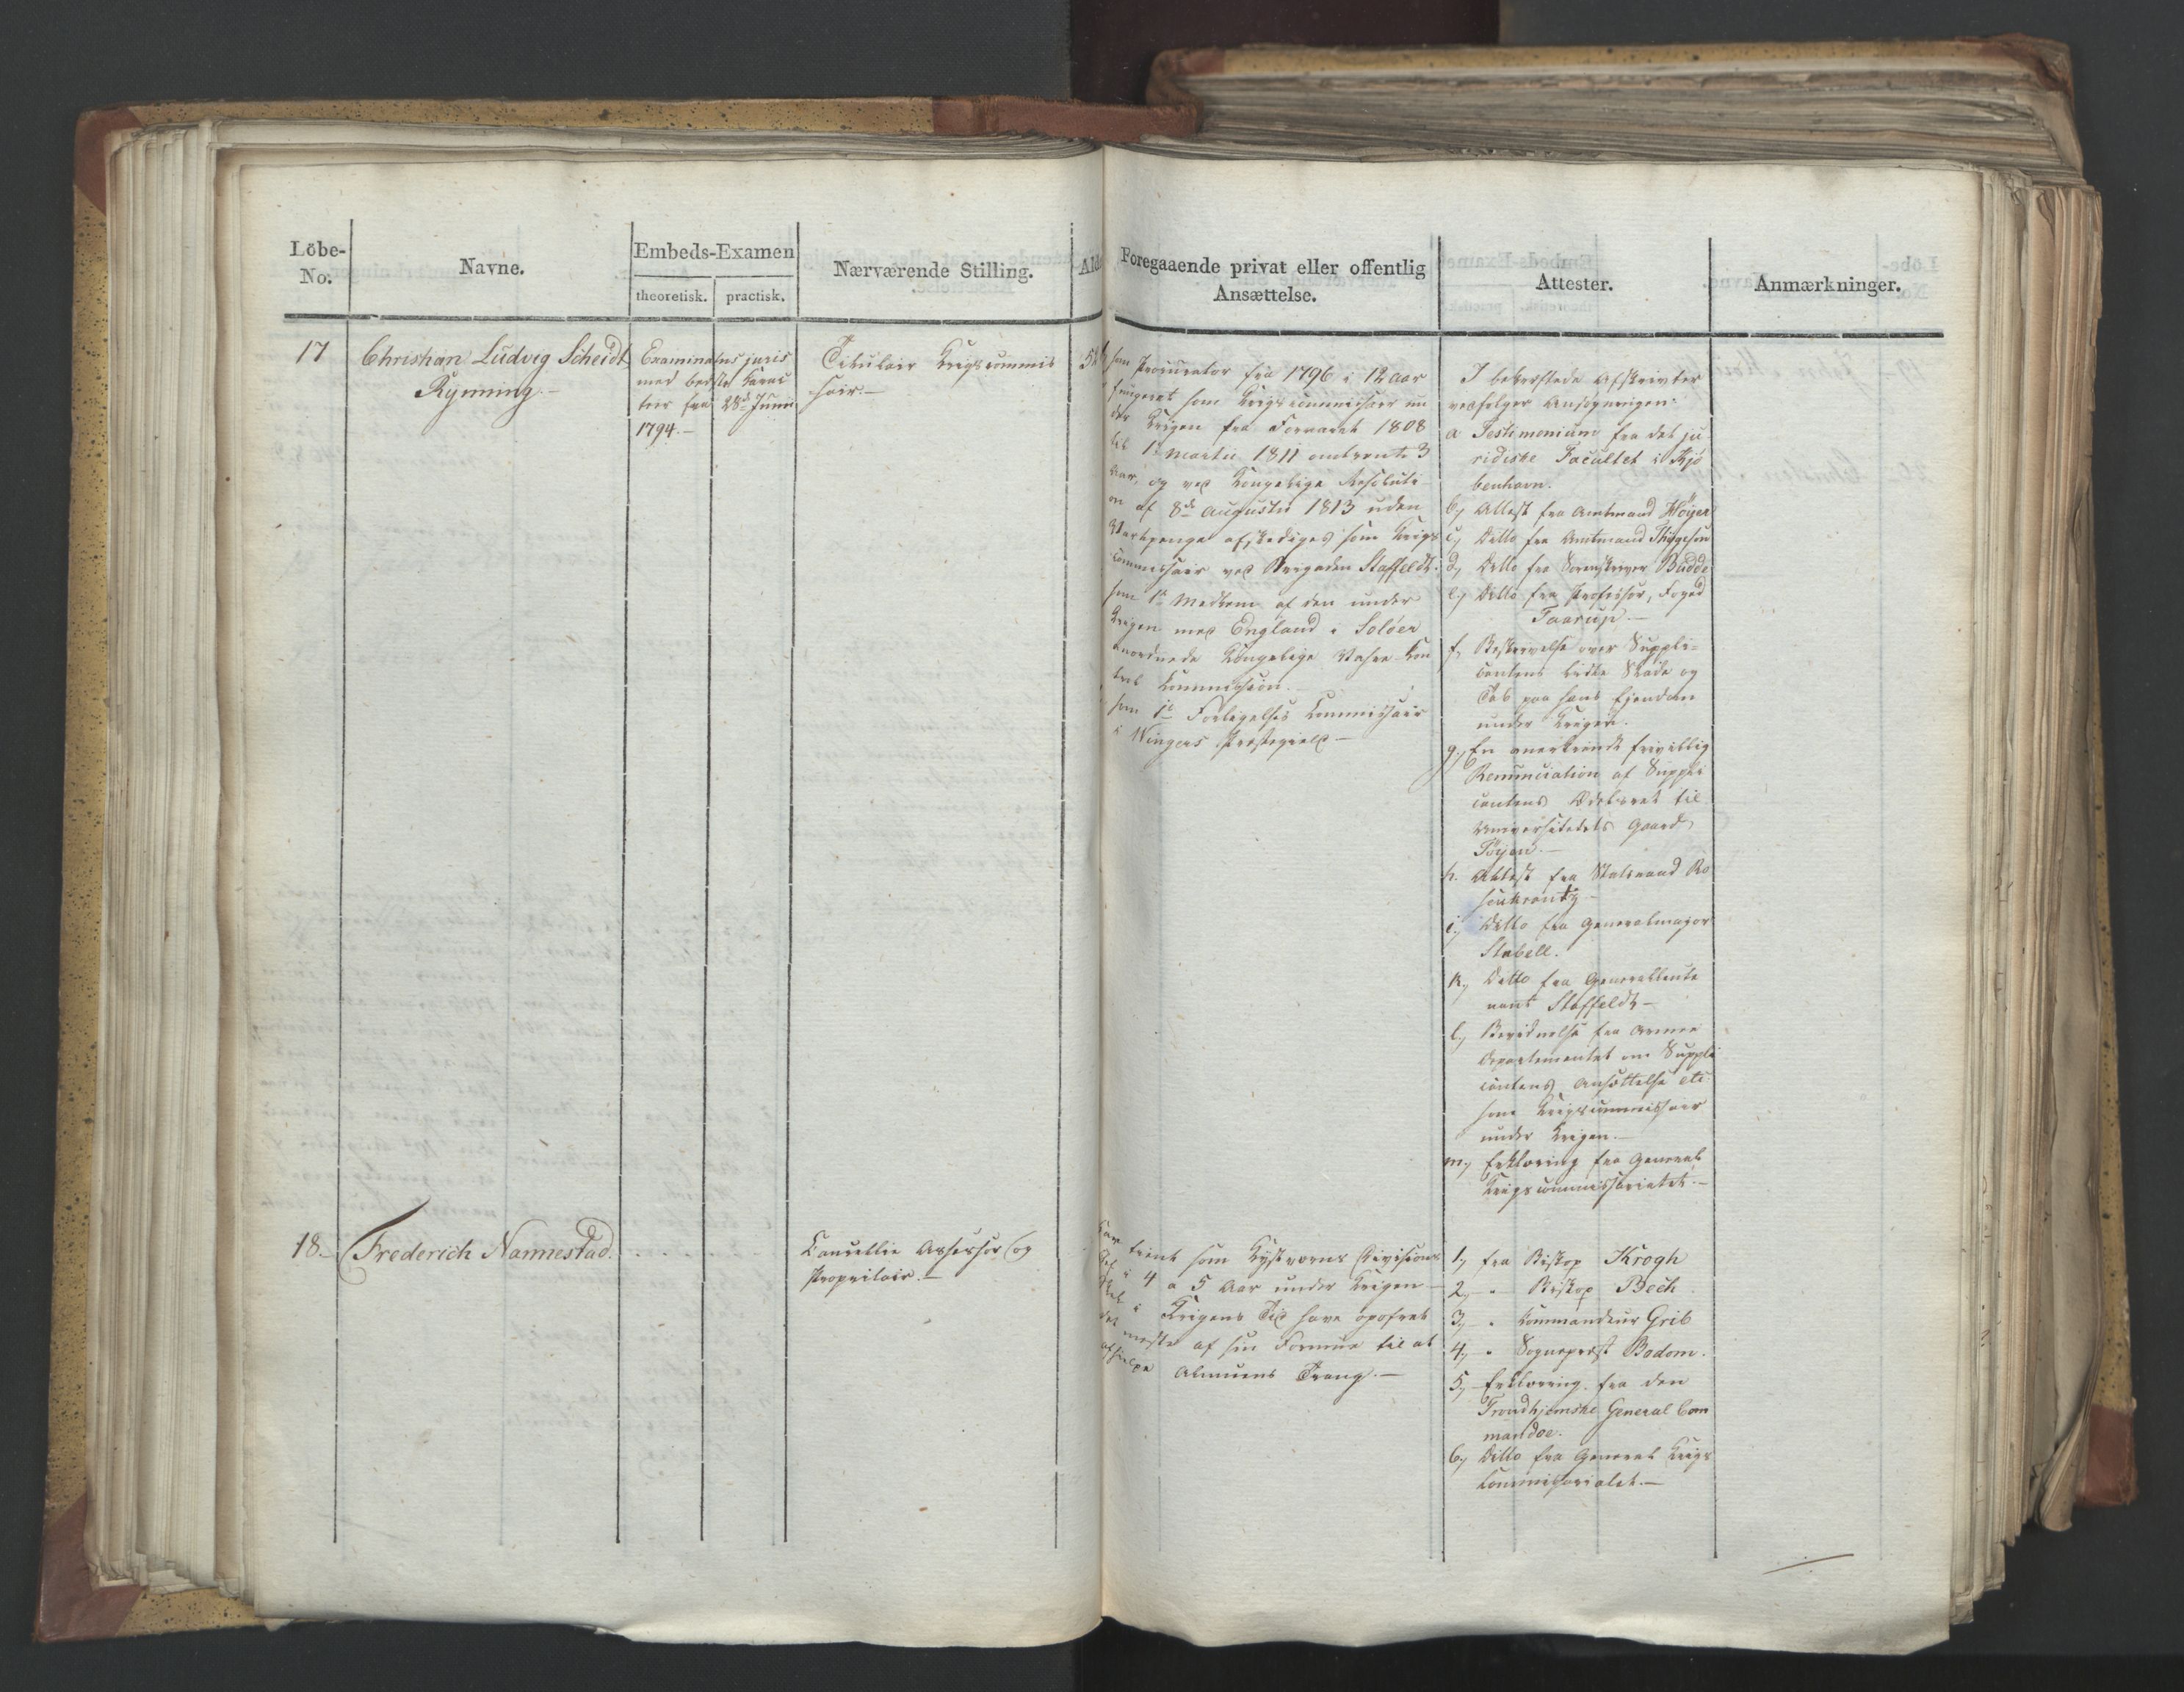 Löbe-
No.
Navne.
Embeds-Examen
theoretisk. practisk.
Nærværende Stilling.
Ald
Foregaaende privat eller offentlig
Ansættelse.
Attester.
Anmærkninger.
17
Christian Ludvig Scheidt
Rynning.-
Examinatus juris
med bedste Carac
teer fra 28de Junii
1794.-
Titulair Krigscommis
sair.-
som Procurator fra 1796 i 12 Aar
fungeret som Krigscommissair un
der Krigen fra Foraaret 1808
til 1ste Martii 1811 omtrent 3
Aar, og ved Kongelige Resoluti
on af 8de Augustii 1813 uden
Vartpenge afskediges som Krigs
commissair ved Brigaden Staffeldt.
som 1te Medlem af den under
Krigen med England i Soløer
anordnede Kongelige
Commission.-
som 1te Forligelses Commissair
i Wingers Præstegield-
I bekræftede Afskrivter
vedfølger Ansøgningen:
a Testimonium fra det ju
ridiske Facultet i Kjø
benhavn.
b, Attest fra Amtmand Höyer
c, Ditto fra Amtmand Thygeson
d, Ditto fra Sorenskriver Budde
e, Ditto fra Professor, Foged
Faarup.-
f, Beskrivelse over Suppli-
cantens lidte Skade og
Tab paa hans Ejendom
under Krigen.
g, En anerkiendt frivillig
Renunciation af Suppli
cantens Odelsret til
Universitetets Gaard
Töyen.-
h. Attest fra Statsraad Ro
senkrantz-
i, Ditto fra Generalmajor
Stabell.
k, Ditto fra Generalleute
nant Staffeldt-
l, Bevidnelse fra Armee
Departementet om Suppli
cantens Ansættelse etc
som Krigscommissair
under Krigen.-
m, Erklæring fra General
Krigscommissariatet.-
18.- Frederich Nannestad.
Cancellie Assessor og
Proprietair.-
tient som Kystværns Divisions
i 4 a 5 Aar under Krigen-
i Krigens Tid have opofret
det meste af sin Formue til at
afhielpe Almuens Trang.-
1, fra Biskop Krogh
2, - " - Biskop Bech
3, - " Commandeur Grib
4, - " Sognepræst Bodom.
5, Erklæring fra den
Trondhjemske General Com
mandoe.
6, Ditto fra General Krigs
commissariatet.-